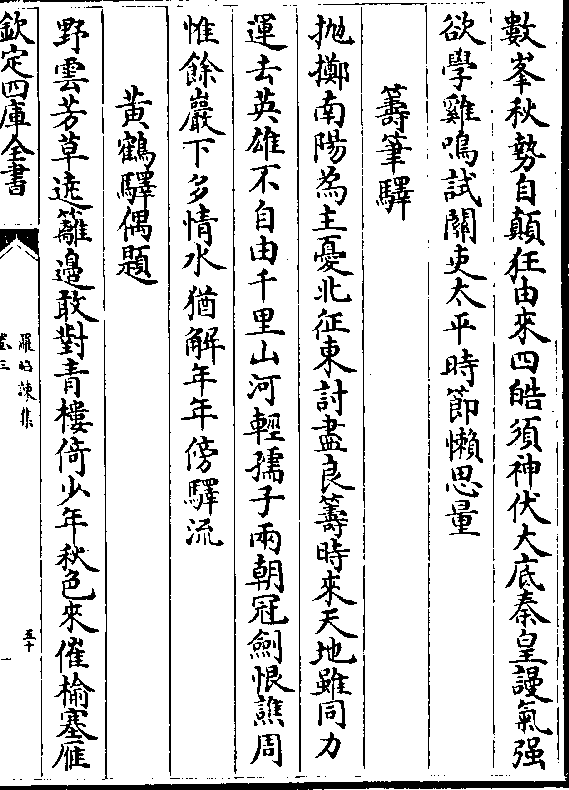 數峯秋勢自顛狂由來四皓須神伏大底秦皇謾氣强
欲學雞鳴試關吏太平時節懶思量
籌筆驛
抛擲南陽為主憂北征東討盡良籌時來天地雖同力
運去英雄不自由千里山河輕孺子兩朝冠劒恨譙周
惟餘巖下多情水猶解年年傍驛流
黄鶴驛偶題
野雲芳草遶籬邉敢對青樓倚少年秋色來催榆塞雁
欽定四庫全書
羅昭諫集
卷三
五十